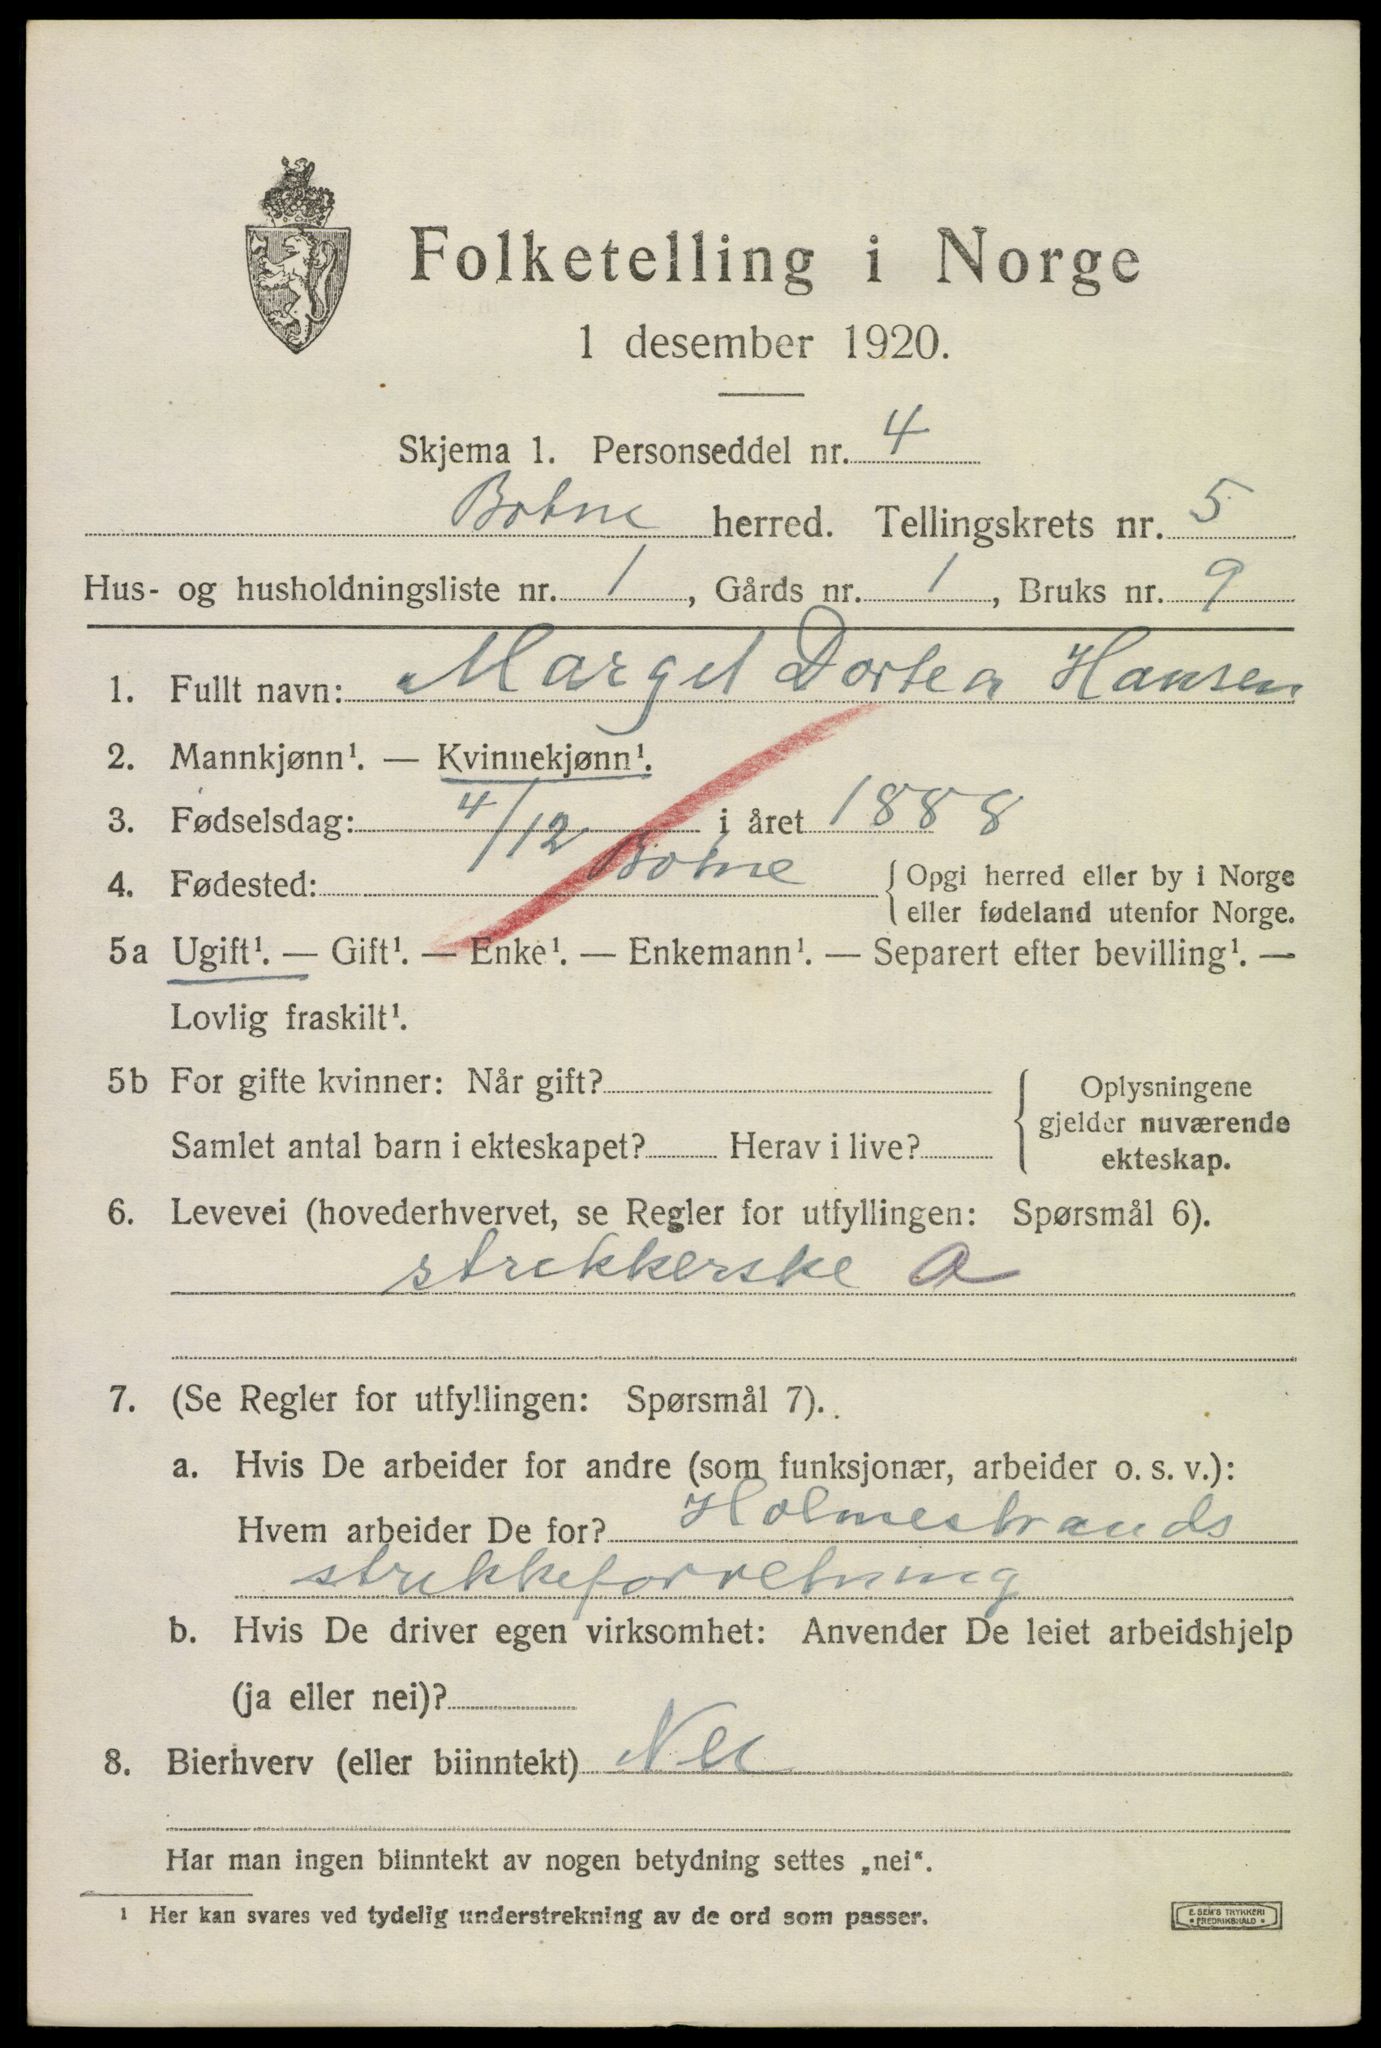 Folketelling i Norge
1 desember 1920.
Skjema 1. Personseddel nr. 4
Botne herred. Tellingskrets nr. 5
Hus- og husholdningsliste nr. 1, Gårds nr. 1, Bruks nr. 9
1. Fullt navn: Margit Dortea Hansen
2. Mannkjønn¹. — Kvinnekjønn¹.
3. Fødselsdag: 4/12 i året 1888
4. Fødested: Botne { Opgi herred eller by i Norge
eller fødeland utenfor Norge.
5a Ugift¹. — Gift¹. — Enke¹. — Enkemann¹. — Separert efter bevilling¹. —
Lovlig fraskilt¹.
5b For gifte kvinner: Når gift?
Samlet antal barn i ekteskapet? Herav i live?
{ Oplysningene
gjelder nuværende
ekteskap.
6. Levevei (hovederhvervet, se Regler for utfyllingen: Spørsmål 6).
strikkerske a
7. (Se Regler for utfyllingen: Spørsmål 7).
a. Hvis De arbeider for andre (som funksjonær, arbeider o. s. v.):
Hvem arbeider De for? Holmestrands
strikkeforretning
b. Hvis De driver egen virksomhet: Anvender De leiet arbeidshjelp
(ja eller nei)?
8. Bierhverv (eller biinntekt) Nei
Har man ingen biinntekt av nogen betydning settes „nei“.
¹ Her kan svares ved tydelig understrekning av de ord som passer.
E. SEM'S TRYKKERI
• FREDRIKSHALD •